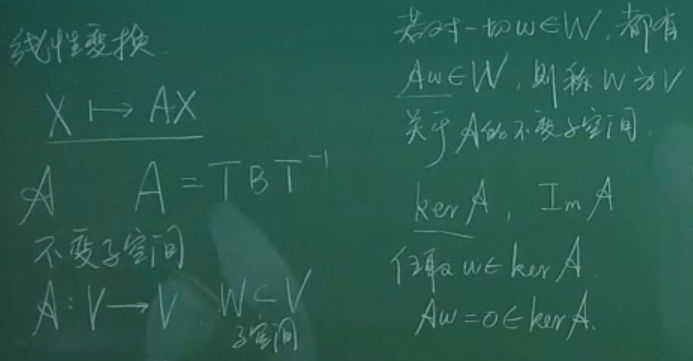 线性变换.
X ↦ AX
𝒜 A = TBT⁻¹
不变子空间
𝒜: V → V. W ⊂ V
子空间
若对一切w∈W, 都有
𝒜w∈W, 则称W为V
关于𝒜的不变子空间.
ker𝒜, Im𝒜
任取w∈ker𝒜.
𝒜w=0∈ker𝒜.